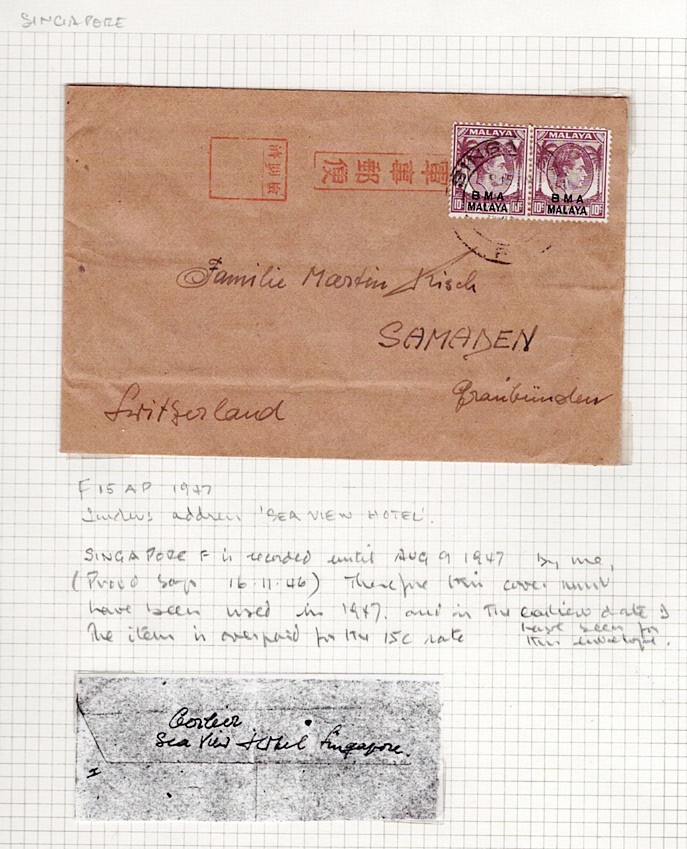 SINGAPORE
軍事郵便
MALAYA MALAYA
BMA BMA
10c MALAYA 10c 10c MALAYA 10c
F
Familie Martin Risch
SAMADEN
Graubünden
Switzerland
F 15 AP 1947
Senders address 'SEA VIEW HOTEL'.
SINGAPORE F is recorded until AUG 9 1947 by me,
(Proud says 16.11.46) Therefore this cover must
have been used in 1947. and is the earliest date I
have seen for
The item is overpaid for the 15c rate this envelope.
Sea View Hotel Singapore.